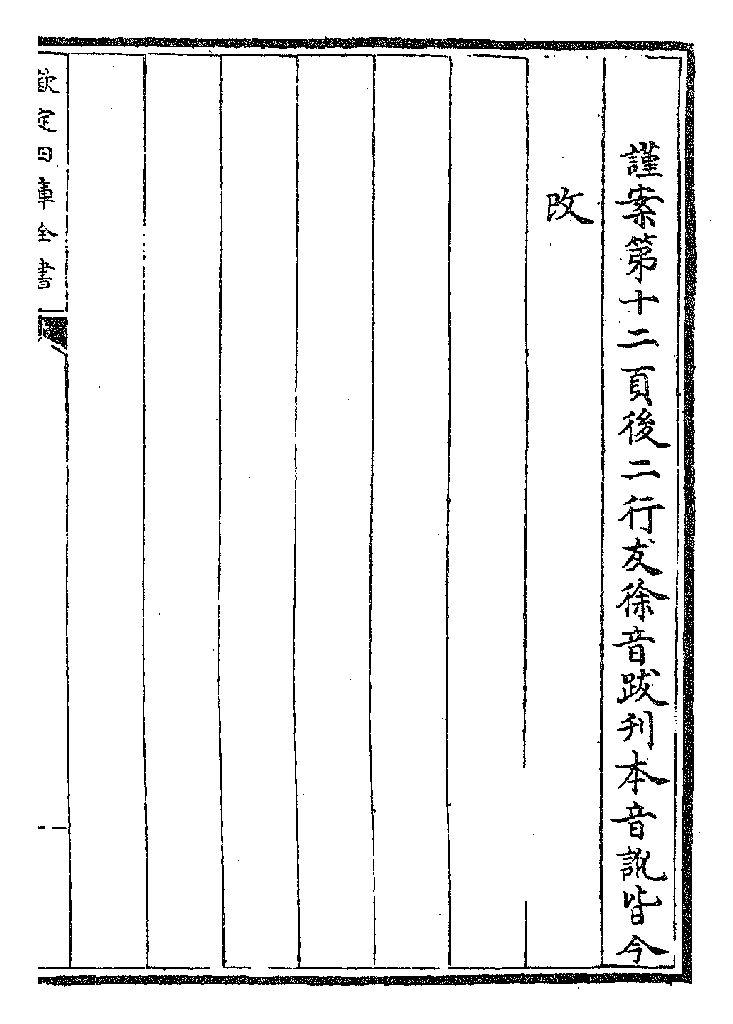 謹案第十二頁後二行犮徐音跋刋本音訛皆今
改
欽定四庫全書